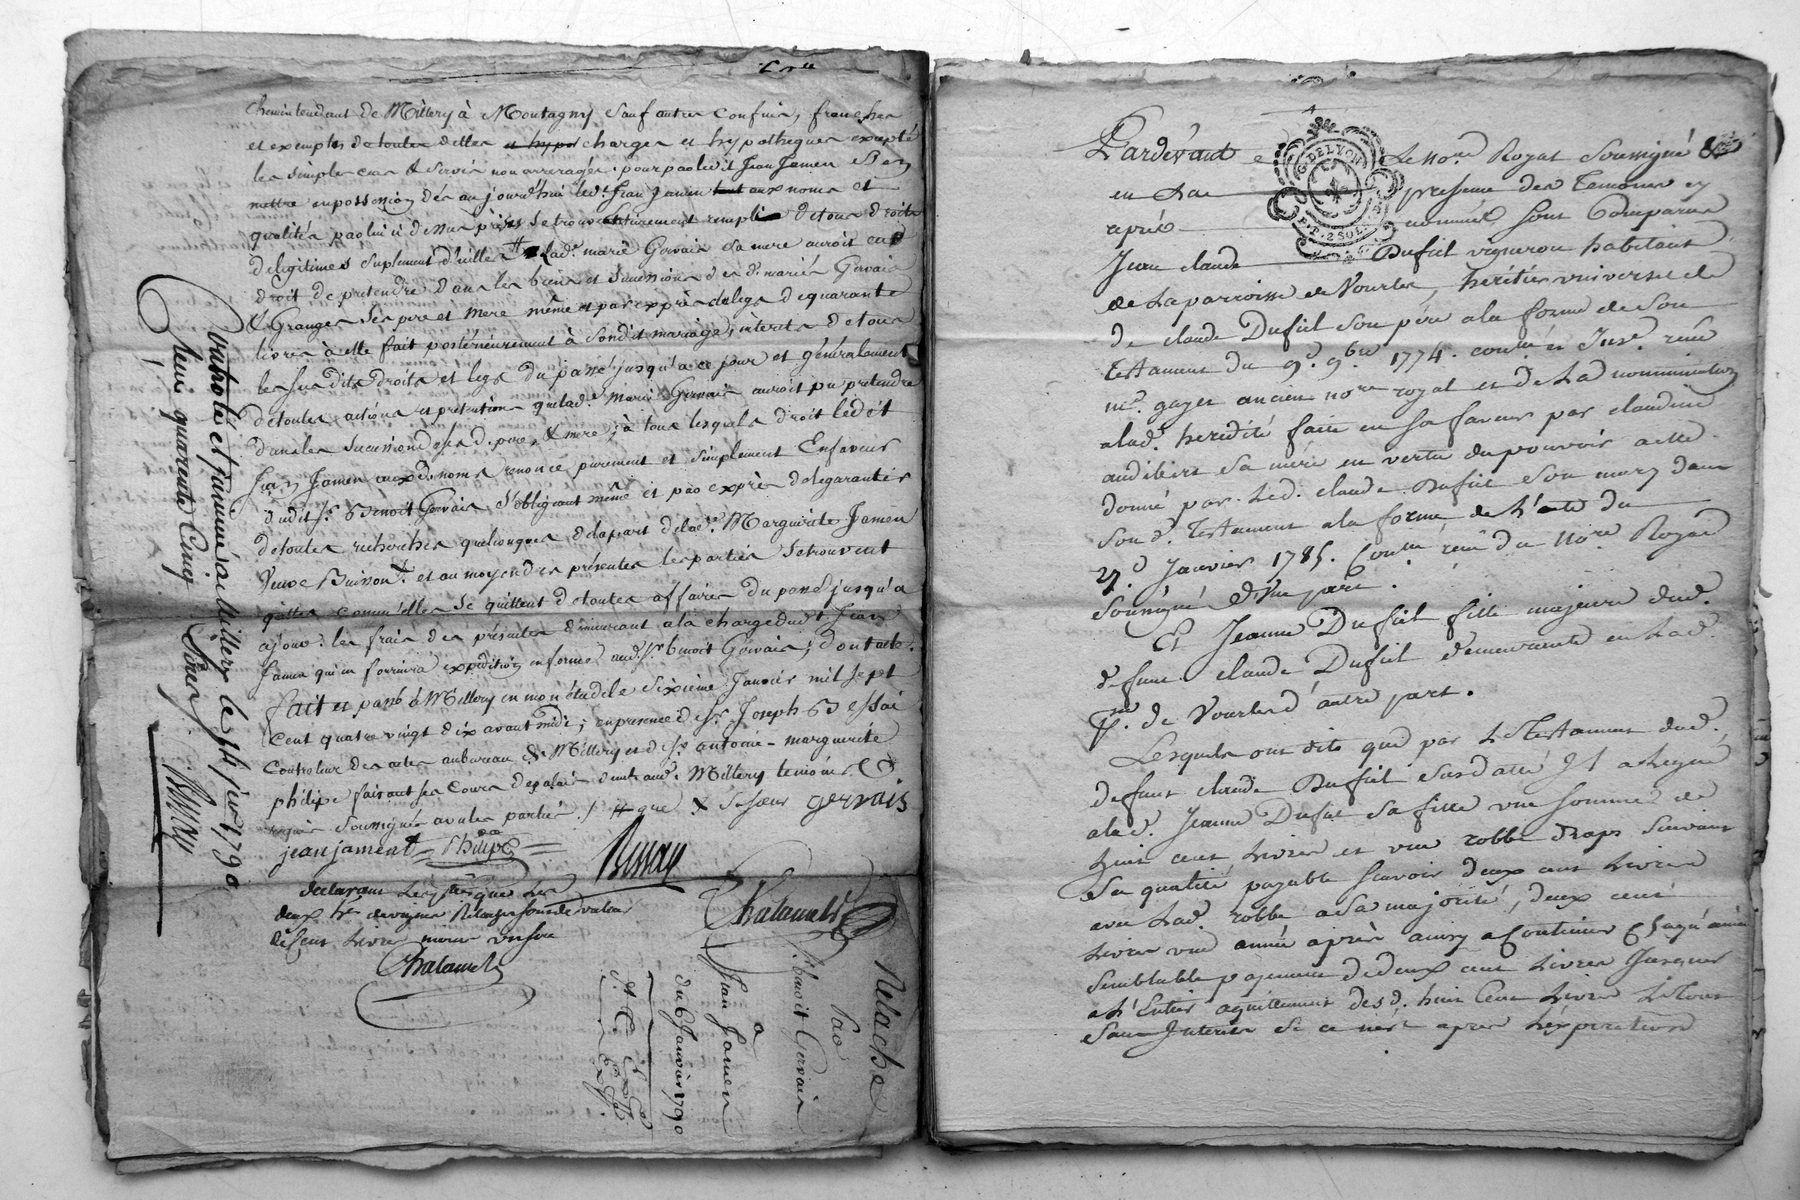 chemin tendant de Millery à Montagny sauf autres confins, franches
et exempts de toutes dettes charges et hypotheques excepté
les simples cens & servis non arreragés, pour par ledit Jean Jamen s'en
mettre en possession dès aujourd'hui led. Jean Jamen aux noms et
qualités par lui ci dessus prises se trouve entièrement rempli de tous droits
de légitimes suplement d'icelles lad. marie Gervais sa mere auroit eu
droit de pretendre dans les biens et successions des d. mariés Gervais
& Granges ses pere et mere même et par exprès du legs de quarante
livres à elle fait postérieurement à son dit mariage, intérêts de tous
les susdits droits et legs du passé jusqu'à ce jour et généralement
de toutes actions et prétentions que lad. Marie Gervais auroit pu prétendre
dans les successions desd. pere & mere; à tous lesquels droits led.
Jean Jamen auxd. noms renonce purement et simplement en faveur
dudit Sr. Benoit Gervais, s'obligeant même et par exprès de le garantir
de toutes recherches quelconques de la part de lad. Marguerite Jamen
Veuve Buisson, et au moyen des présentes les parties se trouvent
quittes comme elles se quittent de toutes affaires du passé jusqu'à
ce jour. les frais des présentes demeurant à la charge dudit Jean
Jamen qui en fournira expédition en forme aud. Sr. benoit Gervais; dont acte.
fait et passé à Millery en mon étude le sixieme Janvier mil sept
cent quatre vingt dix avant midi; en presence de Sr. Joseph Bessai
controleur des actes au bureau de Millery et de Sr. antoine-marguerite
philipe faisant ses cours de palais demt. aud. Millery temoins
requis soussignés avec les parties. / # que sa soeur gervais
jean jament Philipe
Bessay
Chalamel
declarant les parties que les
deux
de cent livres moins un sou
Chalamel
Controlé et Insinué à Millery le 14 janv. 1790
Reçu quarante cinq sous Bessay
Relache
par
Benoit Gervais
a
Jean Jamen
du 6 Janvier 1790
Pardevant le no.re Royal soussigné &
en la presence des Temoins cy
après nommés sont Comparus
Jean claude Dufiel vigneron habitant
de la parroisse de Vourles, heritier universel de
de claude Dufiel son père a la forme de son
testament du 9.e 9.bre 1774. controllé et Insi. reçu
me. gayet ancien no.re royal et de la nomination
a lad. heredité faite en sa faveur par claudine
audibert sa mere en vertu du pouvoir a elle
donné par led. claude Dufiel son mary dans
son d. Testament a la forme de l'acte du
27.e Janvier 1785. Controllé reçu du No.re Royal
soussigné d'Une part.
Et Jeanne Dufiel fille majeure dud.
defunt claude Dufiel demeurante en lad.
p.sse de Vourles d'autre part.
Lesquels ont dits que par le Testament dud.
defunt claude Dufiel susdatté Il a legué
a lad. Jeanne Dufiel sa fille une somme de
huit cent livres et une robbe draps suivant
sa qualité payable sçavoir deux cent livres
avec lad. robbe a sa majorité, deux cent
livres une année après ainsy a Continuer Chaqu'année
semblable payement de deux cent livres Jusques
a l'Entier aquittement desd. huit Cent livres le tout
sans Interets si ce n'est apres l'expiration
G. DE LYON
P.P. 2 SOLS